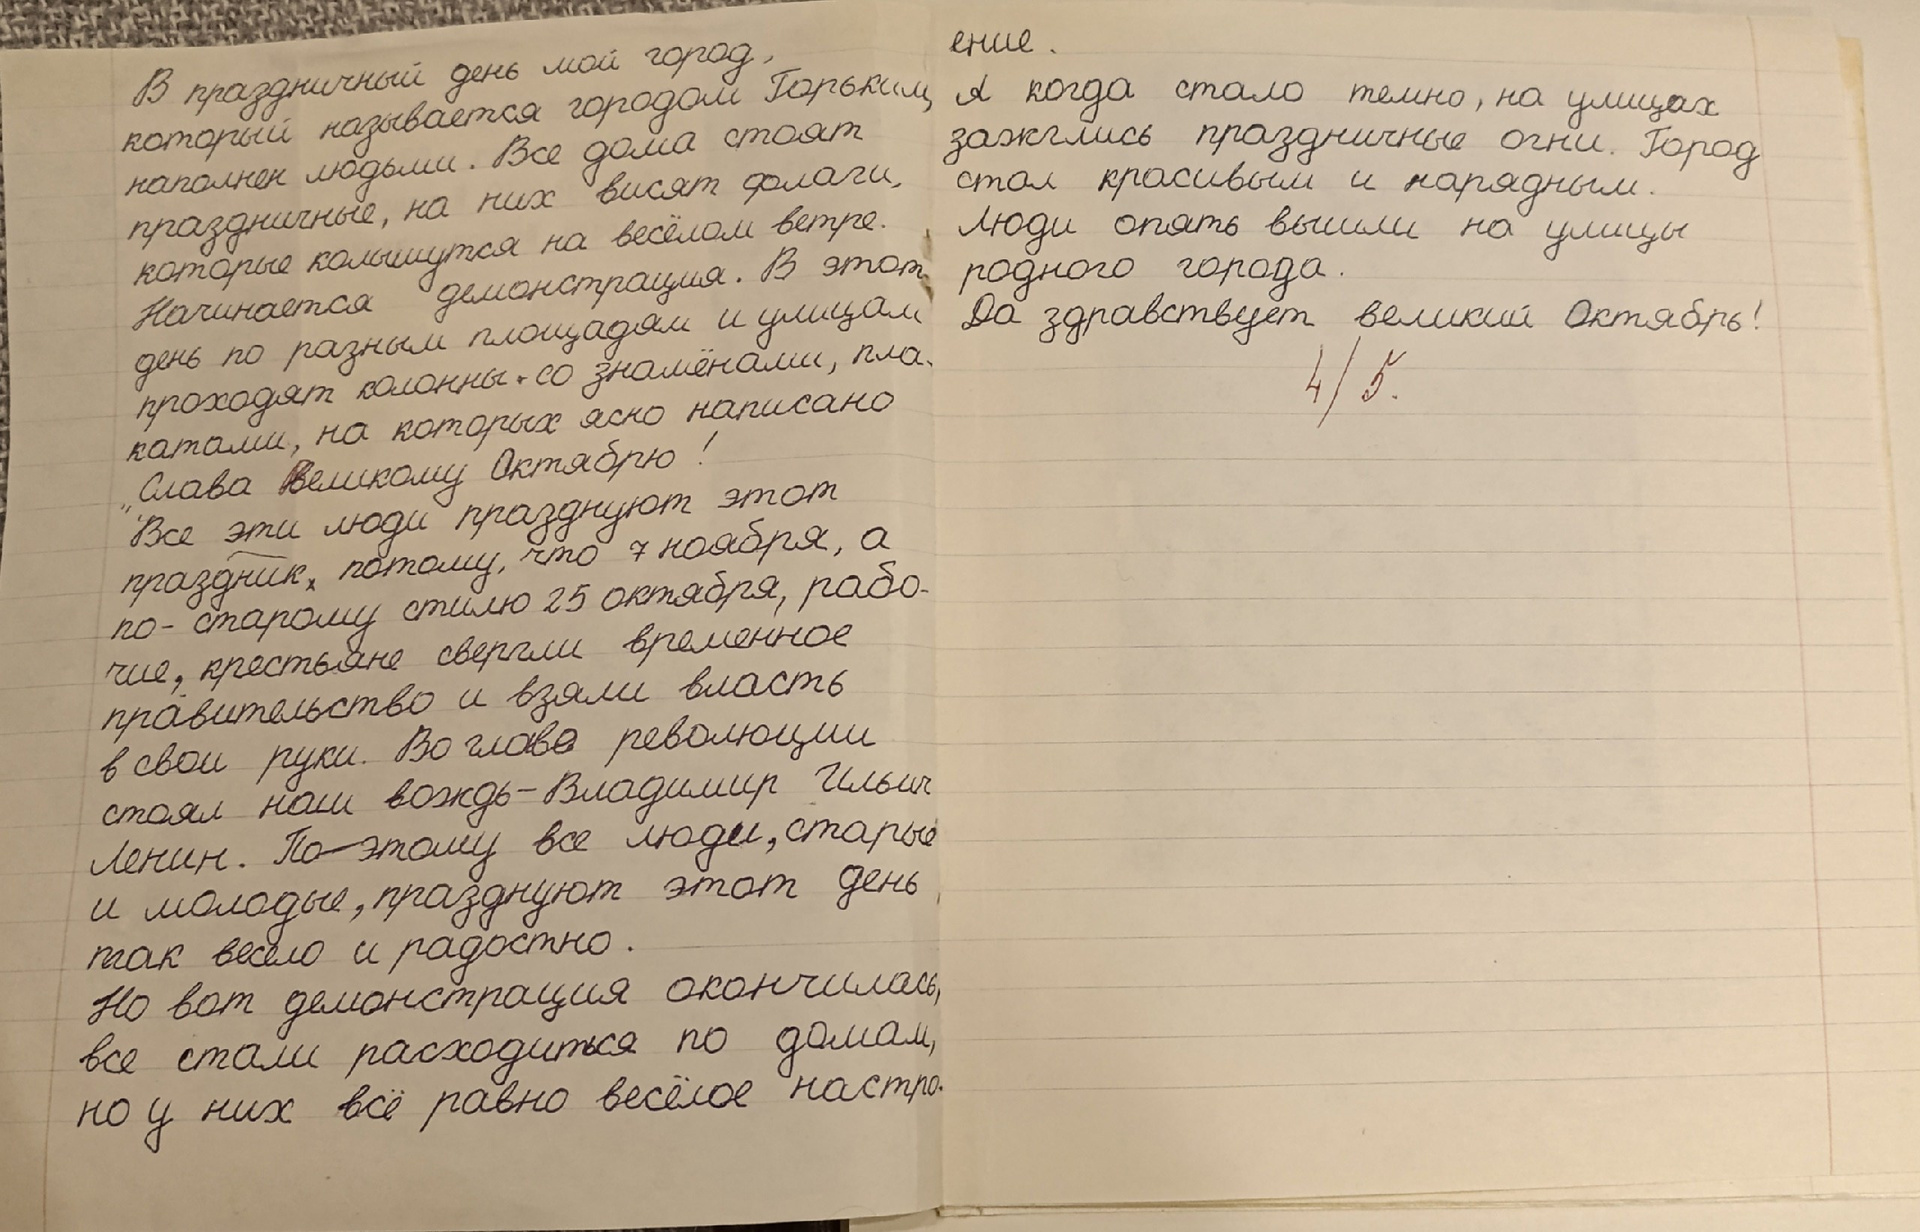 В праздничный день мой город,
который называется городом Горьким,
наполнен людьми. Все дома стоят
праздничные, на них висят флаги,
которые колышутся на весёлом ветре.
Начинается демонстрация. В этот
день по разным площадям и улицам
проходят колонны со знамёнами, пла-
катами, на которых ясно написано
„Слава Великому Октябрю!
"Все эти люди празднуют этот
праздник, потому, что 7 ноября, а
по-старому стилю 25 октября, рабо-
чие, крестьяне свергли временное
правительство и взяли власть
в свои руки. Во главе революции
стоял наш вождь – Владимир Ильич
Ленин. По-этому все люди, старые
и молодые, празднуют этот день
так весело и радостно.
Но вот демонстрация окончилась,
все стали расходиться по домам,
но у них всё равно весёлое настро-
ение.
А когда стало темно, на улицах
зажглись праздничные огни. Город
стал красивым и нарядным.
Люди опять вышли на улицы
родного города.
Да здравствует великий Октябрь!
4/5.